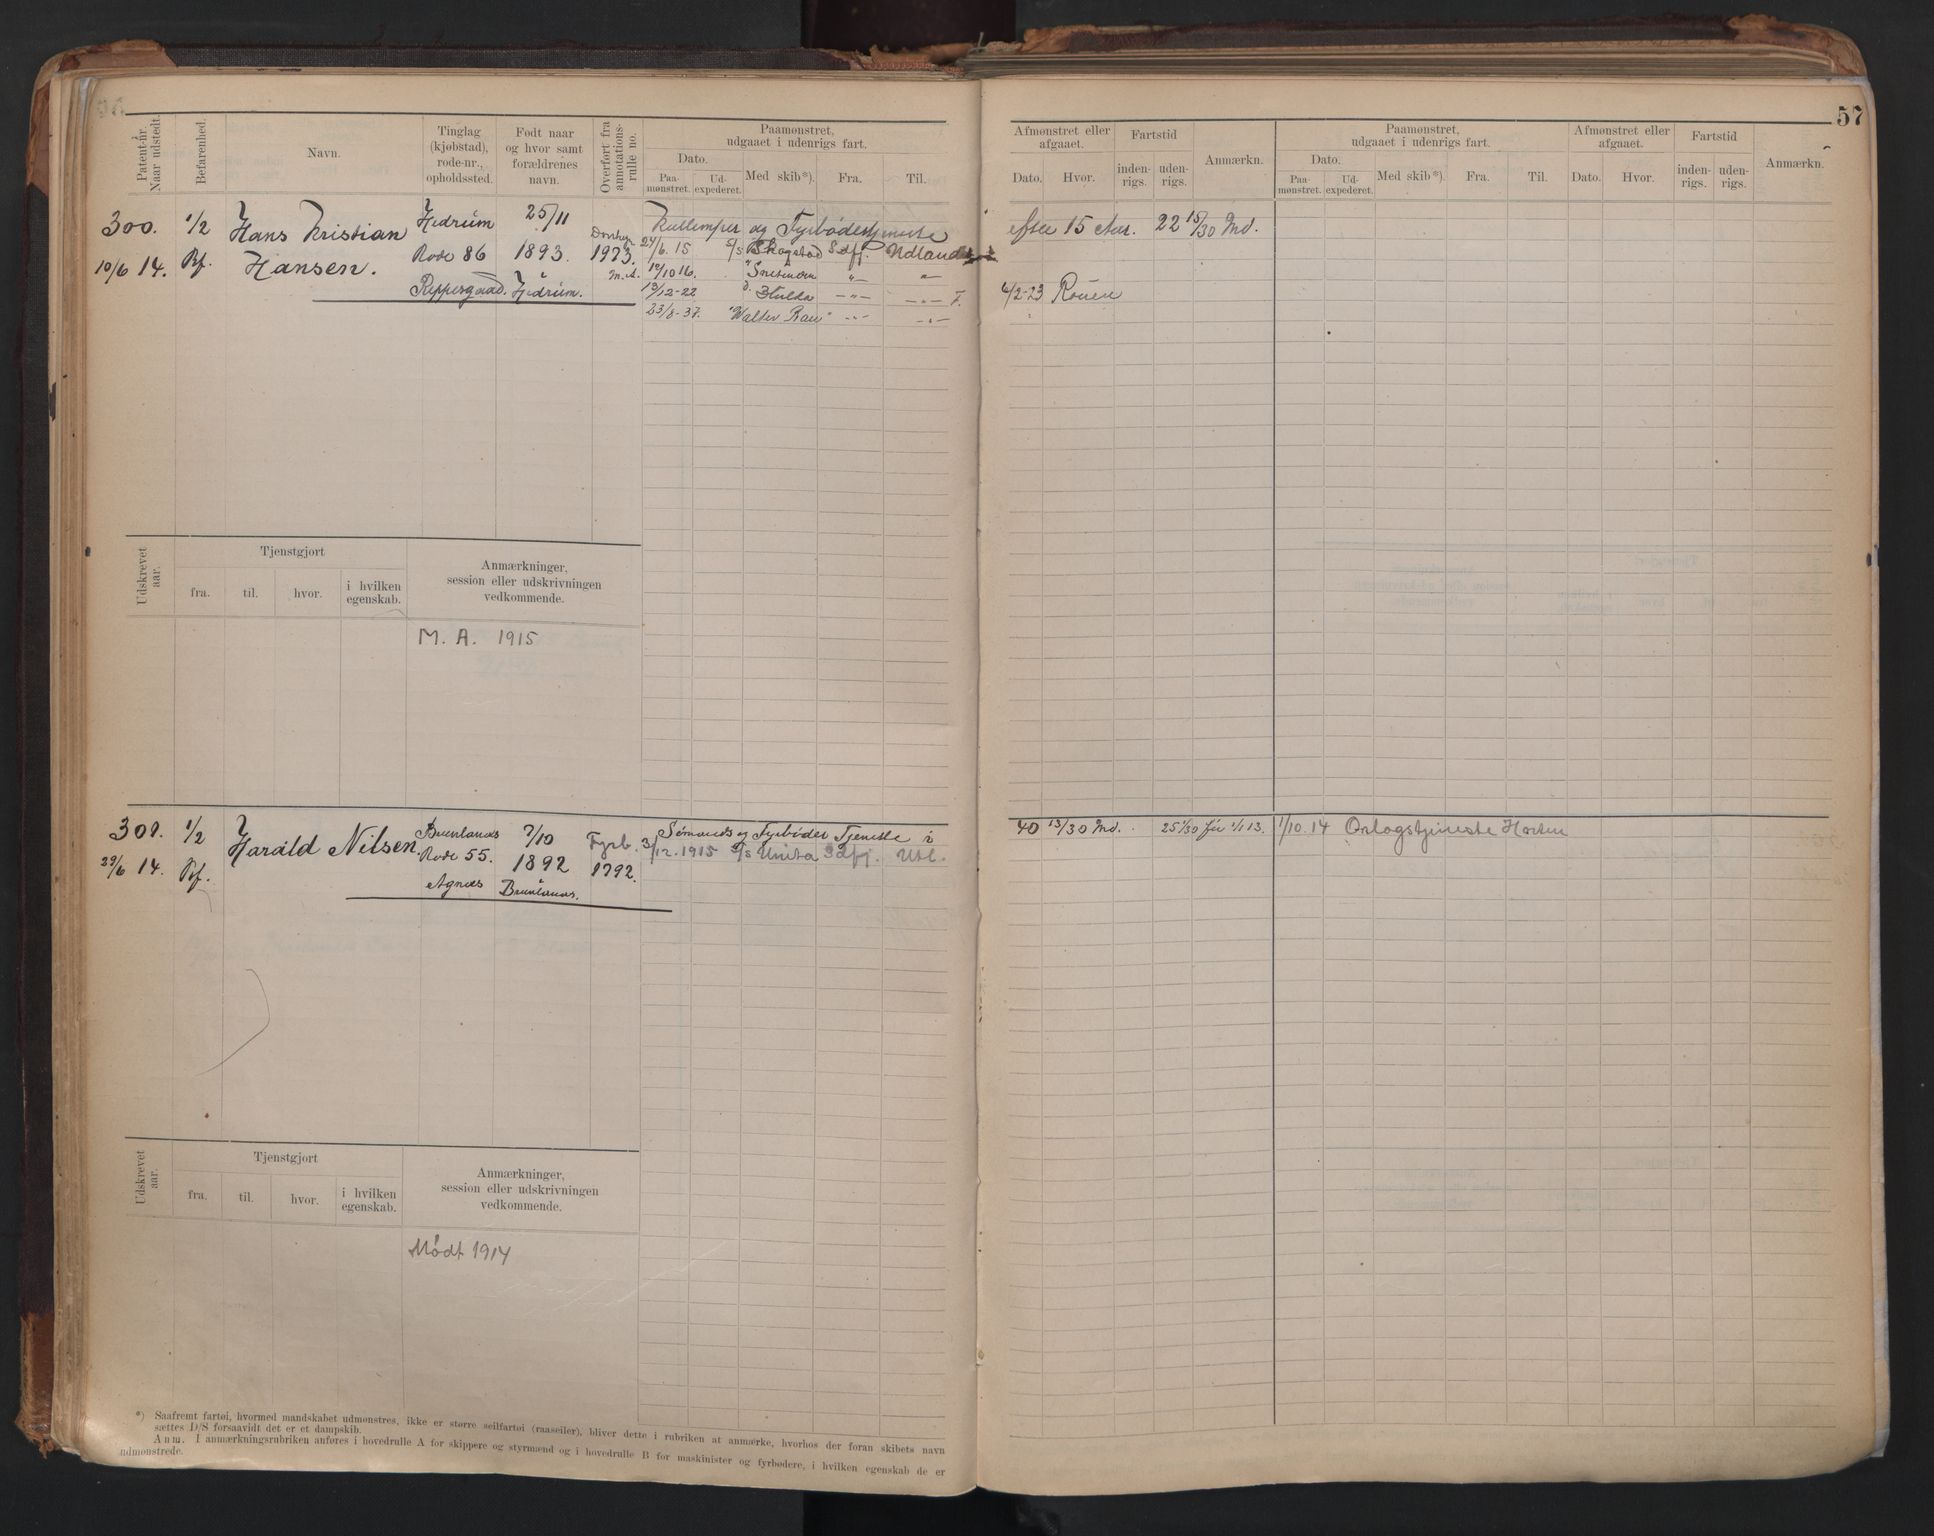 57
Patent-nr. Naar udstedt.
Befarenhed.
Navn.
Tinglag (kjøbstad), rode-nr., opholdssted.
Født naar og hvor samt forældrenes navn.
Overført fra annotations-rulle no.
Paamønstret, udgaaet i udenrigs fart.
Dato.
Paa-mønstret.
Ud-expederet.
Med skib*).
Fra.
Til.
Afmønstret eller afgaaet.
Dato.
Hvor.
Fartstid
inden-rigs.
uden-rigs.
Anmærkn.
Paamønstret, udgaaet i udenrigs fart.
Dato.
Paa-mønstret.
Ud-expederet.
Med skib*).
Fra.
Til.
Afmønstret eller afgaaet.
Dato.
Hvor.
Fartstid
inden-rigs.
uden-rigs.
Anmærkn.
300. 1/2 Hans Kristian Hedrum 25/11
10/6 14. Bf. Hansen. Rode 86 1893. 1923. M.A.
Hedrum.
og Fyrbødertjeneste efter 15 Aar. 22 15/30 Md.
24/6. 15 S/S Skogstad Sdfj. Udlandet
12/10 16. " " "
13/12-22 D. Hulda -"- -"- F. 4/2-23 Rouen
23/8-37. "Walter Rau" -"- -"-
Udskrevet aar.
Tjenstgjort
fra. til. hvor. i hvilken egenskab.
Anmærkninger, session eller udskrivningen vedkommende.
M. A. 1915
301. 1/2 Harald Nilsen. Brunlanæs 7/10 Fyrb.
29/6 14. Bf. Rode 55. 1892 1792.
Agnæs Brunlanæs.
Sømands og Fyrbøder Tjeneste i 40 13/30 Md. 25 1/30 før 1/1 13. 1/10. 14 Orlogstjeneste Horten
3/12. 1915 S/S Unita Sdfj. Utl.
Udskrevet aar.
Tjenstgjort
fra. til. hvor. i hvilken egenskab.
Anmærkninger, session eller udskrivningen vedkommende.
Mødt 1914
*) Saafremt fartøi, hvormed mandskabet udmønstres, ikke er større seilfartøi (raaseiler), bliver dette i rubriken at anmærke, hvorhos der foran skibets navn
sættes D/S forsaavidt det er et dampskib.
Anm. I anmærkningsrubriken anføres i hovedrulle A for skippere og styrmænd og i hovedrulle B for maskinister og fyrbødere, i hvilken egenskab de er
udmønstrede.